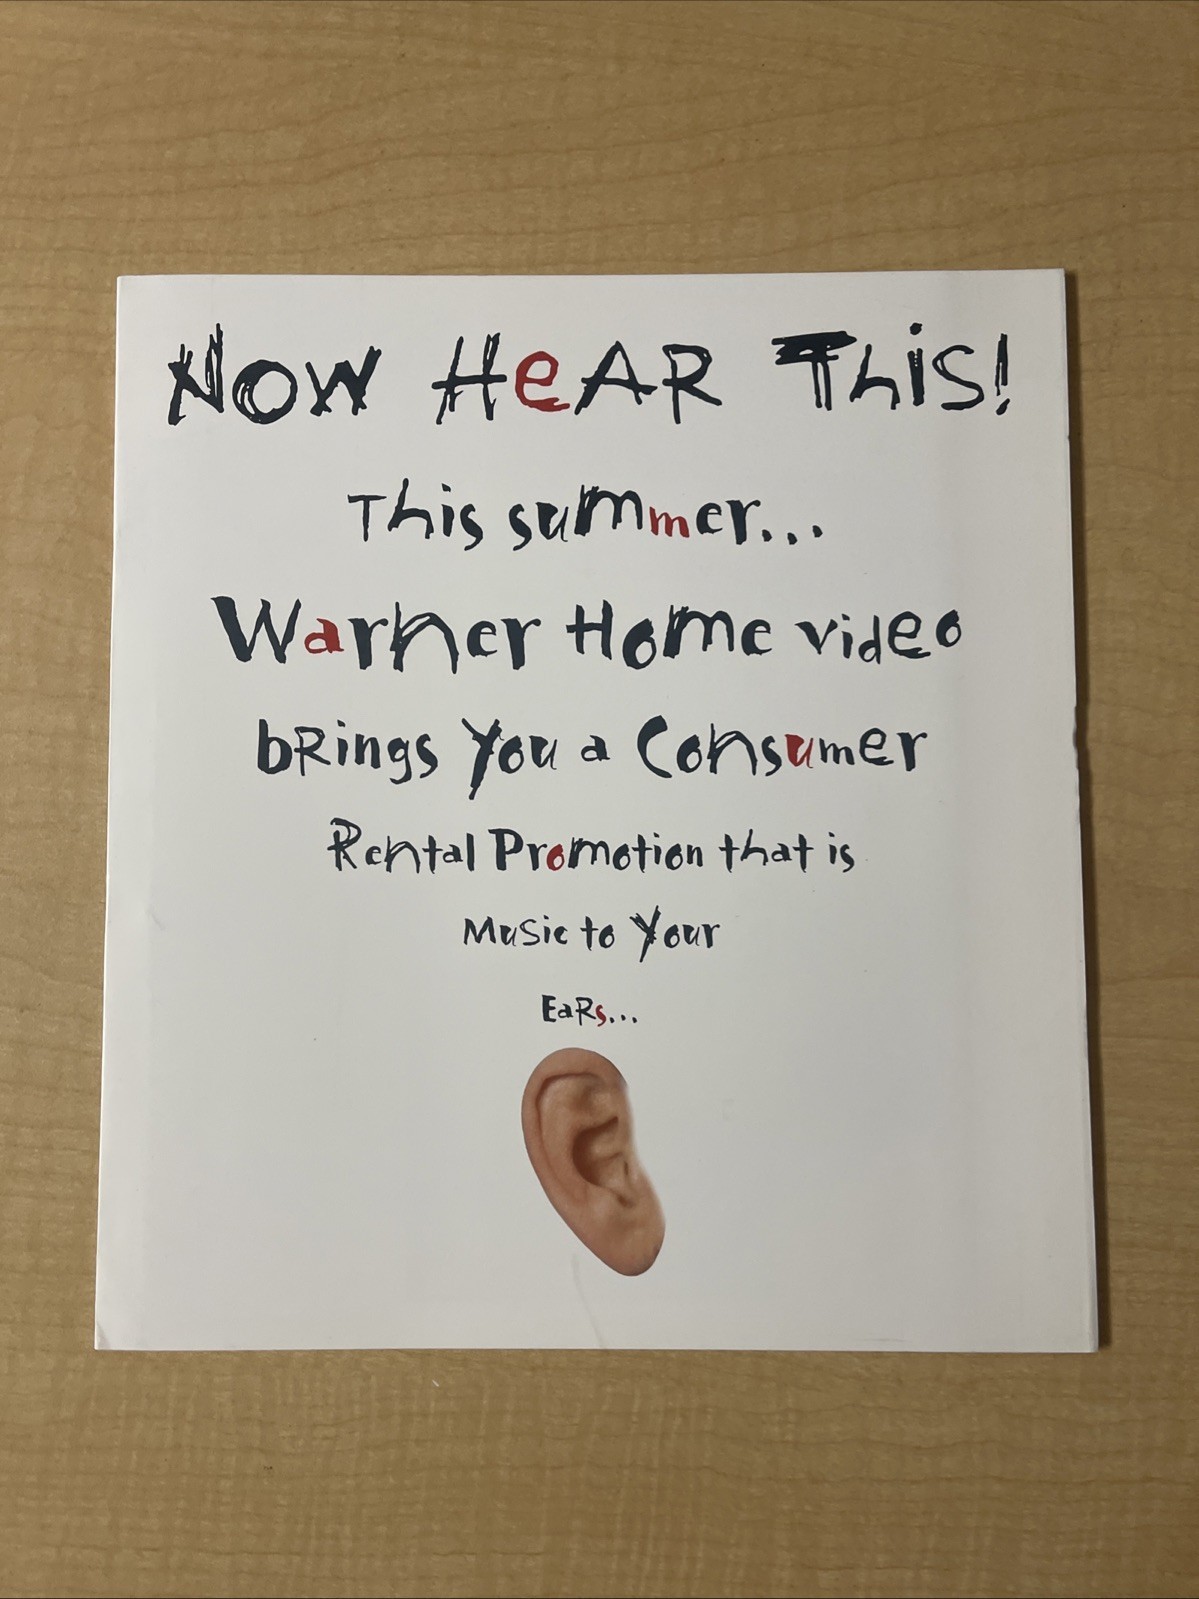 Now HeAR This!
This summer...
Warner Home video
bRings You a Consumer
Rental Promotion that is
Music to Your
EaRs...